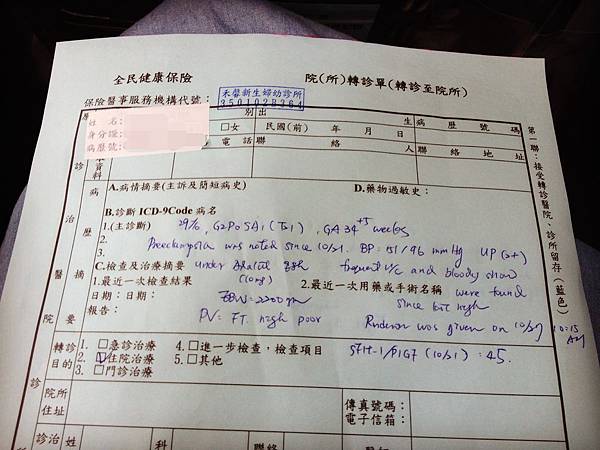 全民健康保險 院(所)轉診單(轉診至院所)
保險醫事服務機構代號: 禾馨新生婦幼診所
350102B364
姓 名:
身分證:
病歷號:
性別
□女
出生
民國(前) 年 月 日
病歷號碼
電話
聯絡人
聯絡地址
本資料
A.病情摘要(主訴及簡短病史) D.藥物過敏史:
B.診斷 ICD-9Code 病名
1.(主診斷) 29 y/o, G2P0SA1, GA 34+5 weeks
2. Preeclampsia was noted since 10/21. BP: 151/96 mmHg UP(2+)
3.
C.檢查及治療摘要 under frequent u/c and bloody show
1.最近一次檢查結果 2.最近一次用藥或手術名稱 were found
日期:日期: EBW=2200 gm since last night
報告: PV: FT, high poor was given on 10/27 10:15 AM
轉診目的
1. □急診治療 4.□進一步檢查,檢查項目 sFlt-1/PlGF (10/21): 45.
2. □住院治療 5.□其他
3. □門診治療
院所住址
傳真號碼:
電子信箱:
診治 姓 科 聯絡
病歷摘要
診治醫院
第一聯:接受轉診醫院、診所留存(藍色)